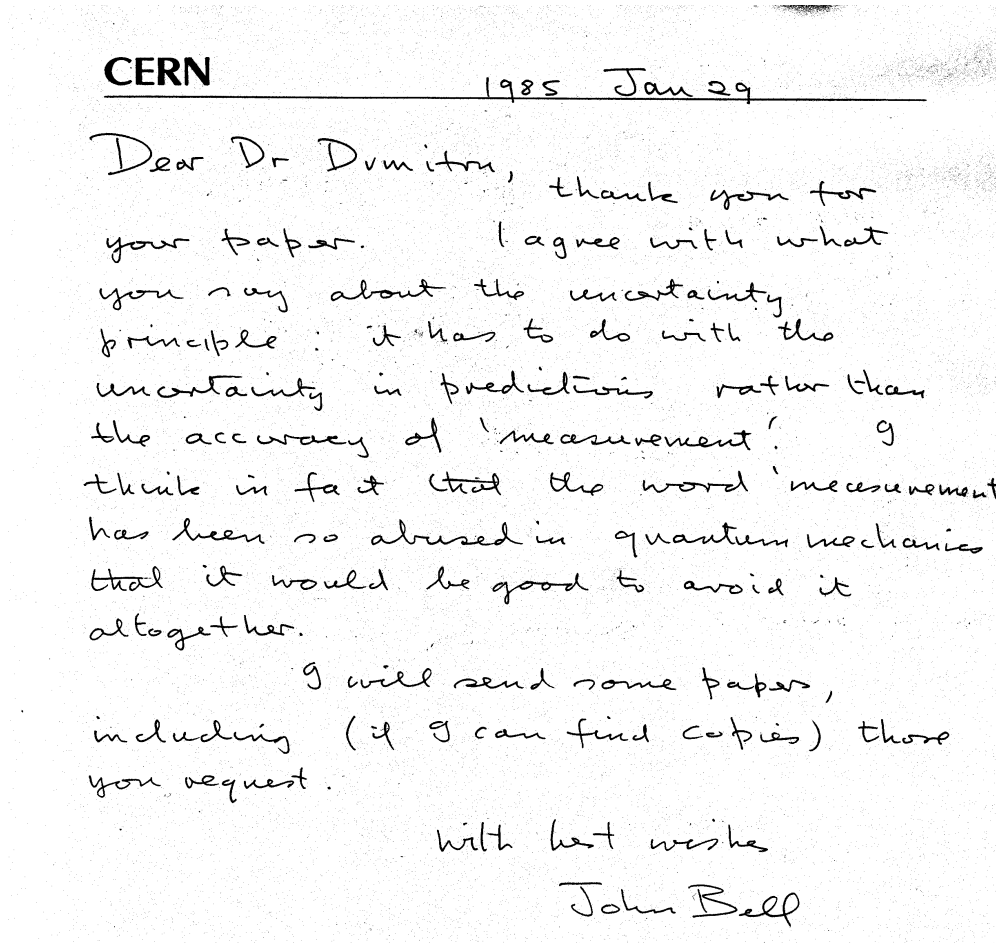 CERN
1985 Jan 29
Dear Dr Dumitru,
thank you for
your paper. I agree with what
you say about the uncertainty
principle : it has to do with the
uncertainty in predictions rather than
the accuracy of 'measurement'. I
think in fact that the word 'measurement
has been so abused in quantum mechanics
that it would be good to avoid it
altogether.
I will send some papers,
including (if I can find copies) those
you request.
With best wishes
John Bell